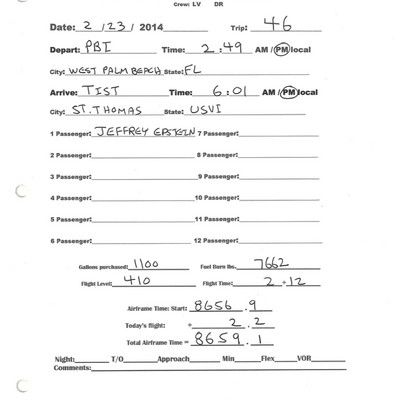 Crew: LV DR
Date: 2 / 23 / 2014 Trip: 46
Depart: PBI Time: 2 : 49 AM / PM local
City: WEST PALM BEACH State: FL
Arrive: TIST Time: 6 : 01 AM / PM local
City: ST. THOMAS State: USVI
1 Passenger: JEFFREY EPSTEIN 7 Passenger:
2 Passenger: 8 Passenger:
3 Passenger: 9 Passenger:
4 Passenger: 10 Passenger:
5 Passenger: 11 Passenger:
6 Passenger: 12 Passenger:
Gallons purchased: 1100 Fuel Burn lbs. 7662
Flight Level: 410 Flight Time: 2 + 12
Airframe Time: Start: 8656 . 9
Today's flight: + 2 . 2
Total Airframe Time = 8659 . 1
Night: T/O Approach Min Flex VOR
Comments: